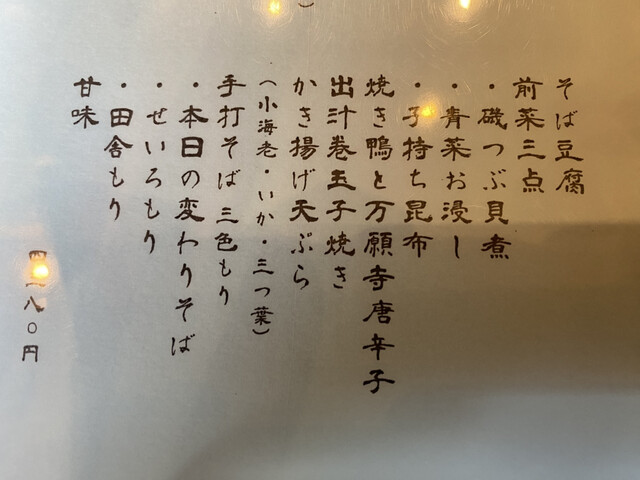 そば豆腐
前菜三点
・磯つぶ貝煮
・青菜お浸し
・子持ち昆布
焼き鴨と万願寺唐辛子
出汁巻玉子焼き
かき揚げ天ぷら
(小海老・いか・三つ葉)
手打そば三色もり
・本日の変わりそば
・せいろもり
・田舎もり
甘味
四一八〇円